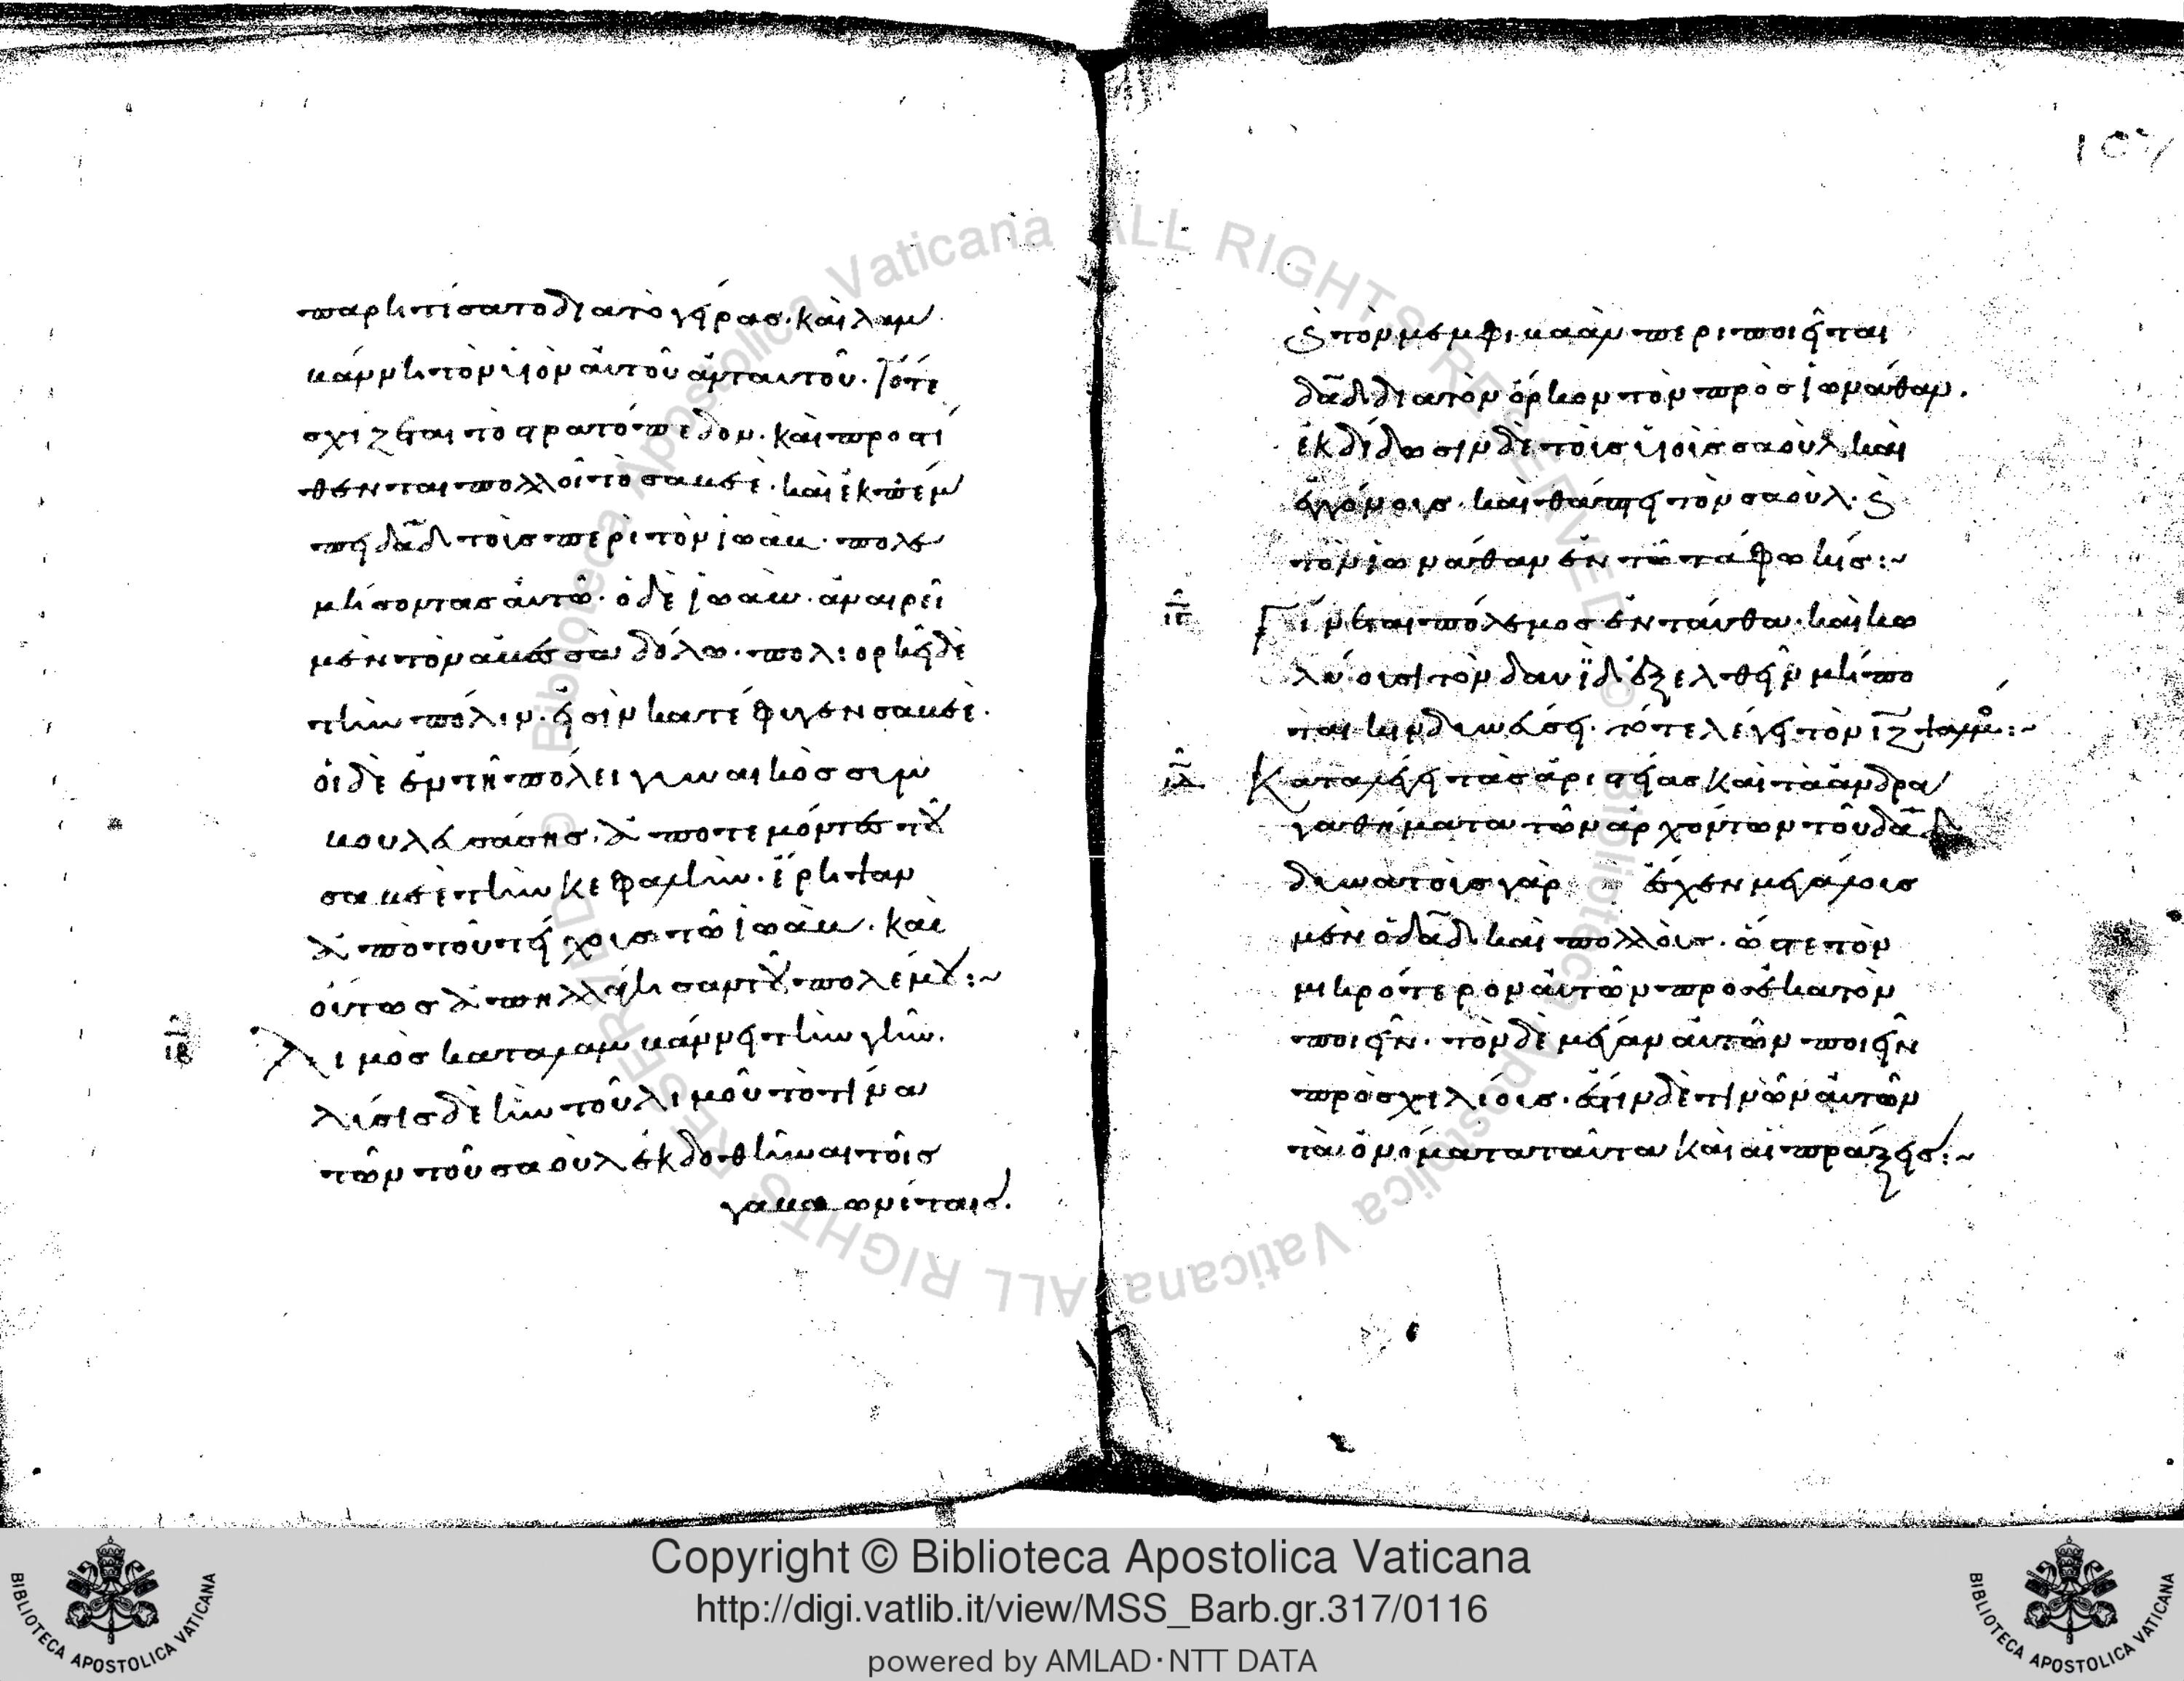 παρητήσατο διὰ τὸ γέρας. καὶ λαμ
βάνει τὸν υἱὸν αὐτοῦ ἀντ αὐτοῦ. Τότε
σχίζεται τὸ στρατόπεδον. καὶ προστί
θενται πολλοὶ τῷ σαβεέ. καὶ ἐκπέμ
πει δαδ τοὺς περὶ τὸν ἰωάβ. πολε
μήσοντας αὐτῷ. ὁ δὲ ἰωάβ. ἀναιρεῖ
μὲν τὸν ἀμεσσὰ δόλω. πολιορκεῖ δὲ
τὴν πόλιν. εἰς ἣν κατέφυγεν σαβεέ.
οἱ δὲ ἐν τῆ πόλει γυναικὸς συμ
βουλευσάσης. ἀποτεμόντες τοῦ
σαβεὲ τὴν κεφαλὴν. ἔρριψαν
ἀπὸ τοῦ τείχους τῶ ἰωάβ. καὶ
οὕτως ἀπηλλάγησαν τοῦ πολέμου:~
ιβ Λιμὸς καταλαμβάνει τὴν γῆν.
λύσις δὲ ἦν τοῦ λιμοῦ τὸ τινὰ
τῶν τοῦ σαοὺλ ἐκδοθῆναι τοῖς
γαβαωνίταις.
107
τὸν μεμφιβαὰλ περιποιεῖται
δαδ διὰ τὸν ὅρκον τὸν πρὸς ἰωνάθαν.
ἐκδίδωσιν δὲ τοὺς υἱοὺς σαοὺλ καὶ
ἐγγόνους. καὶ θάπτει τὸν σαούλ. καὶ
τὸν ἰωνάθαν ἐν τῶ τάφω κίς:~
ιγ Γίνεται πόλεμος ἐνταῦθα. καὶ κω
λύουσι τὸν δαυῒδ ἐξελθεῖν μή πο
τε κινδυνεύση. τότε λέγει τὸν ιζ ψαλμὸν:~
ιδ Καταλέγει τὰς ἀριστείας καὶ τὰ ἀνδρα
γαθήματα τῶν ἀρχόντων τοῦ δαδ
δυνατοὺς γὰρ ἔσχεν μεγάλους
μὲν ὁ δαδ καὶ πολλούς. ὥστε τὸν
μικρότερον αὐτῶν πρὸς ἑκατὸν
ποιεῖν. τὸν δὲ μέγαν αὐτῶν ποιεῖν
πρὸς χιλίους. ἔστιν δὲ τινῶν αὐτῶν
τὰ ὀνόματα ταῦτα καὶ αἱ πράξεις:~
Copyright © Biblioteca Apostolica Vaticana
http://digi.vatlib.it/view/MSS_Barb.gr.317/0116
powered by AMLAD·NTT DATA
BIBLIOTECA APOSTOLICA VATICANA
BIBLIOTECA APOSTOLICA VATICANA